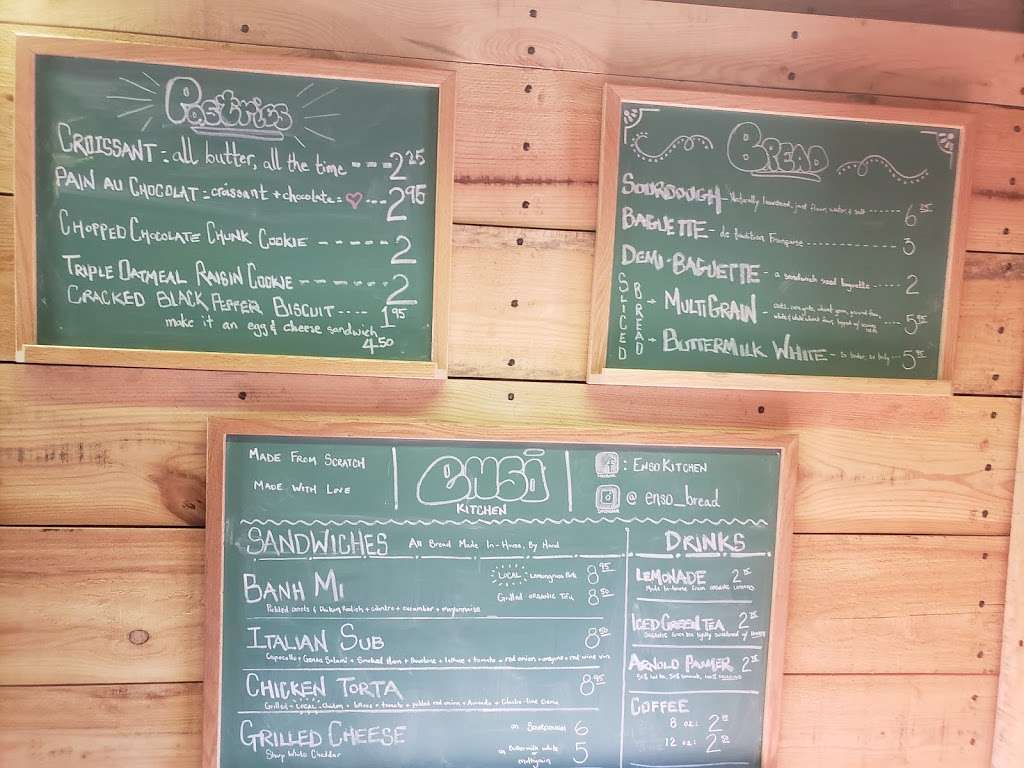 Pastries
CROISSANT: all butter, all the time --- 2 25
PAIN AU CHOCOLAT = croissant + chocolate = ♥ --- 2 95
CHOPPED CHOCOLATE CHUNK COOKIE ------ 2
TRIPLE OATMEAL RAISIN COOKIE ------ 2
CRACKED BLACK PEPPER BISCUIT ---- 1 95
make it an egg & cheese sandwich
4.50
BREAD
SOURDOUGH - Naturally leavened, just flour, water, & salt ------ 6
BAGUETTE - de tradition Française ------ 3
DEMI-BAGUETTE - a sandwich sized baguette ---- 2
SLICED BREAD
MULTIGRAIN - 5
BUTTERMILK WHITE - so tender, so tasty --- 5
MADE FROM SCRATCH
MADE WITH LOVE
ensō
KITCHEN
: ENSO KITCHEN
@ enso_bread
SANDWICHES All Bread Made In-House, By Hand
BANH MI LOCAL Lemongrass Pork 8 95
Grilled ORGANIC Tofu 8 50
Pickled carrots & Daikon Radish + cilantro + cucumber + mayonnaise
ITALIAN SUB 8
Capocollo + Genoa Salami + Smoked Ham + Provolone + lettuce + tomato + red onion + oregano + red wine vin
CHICKEN TORTA 8 95
Grilled LOCAL Chicken + lettuce + tomato + pickled red onion + Avocado + Cilantro-lime Crema
GRILLED CHEESE on SOURDOUGH 6
Sharp White Cheddar on Buttermilk white 5
or multigrain
DRINKS
LEMONADE 2
Made In-house from organic lemons
ICED GREEN TEA 2
lightly sweetened w/ HONEY
ARNOLD PALMER 2
50% iced tea, 50% lemonade, 100%
COFFEE
8 oz: 2
12 oz: 2